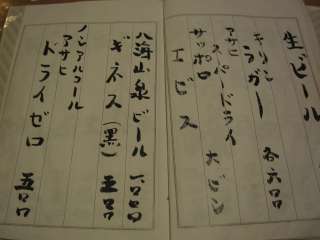 生ビール
キリン
ラガー 各六〇〇
アサヒ
スーパードライ
サッポロ 大ビン
エビス
八海山泉ビール 一〇〇〇
ギネス(黒) 五〇〇
ノンアルコール
アサヒ
ドライゼロ 五〇〇